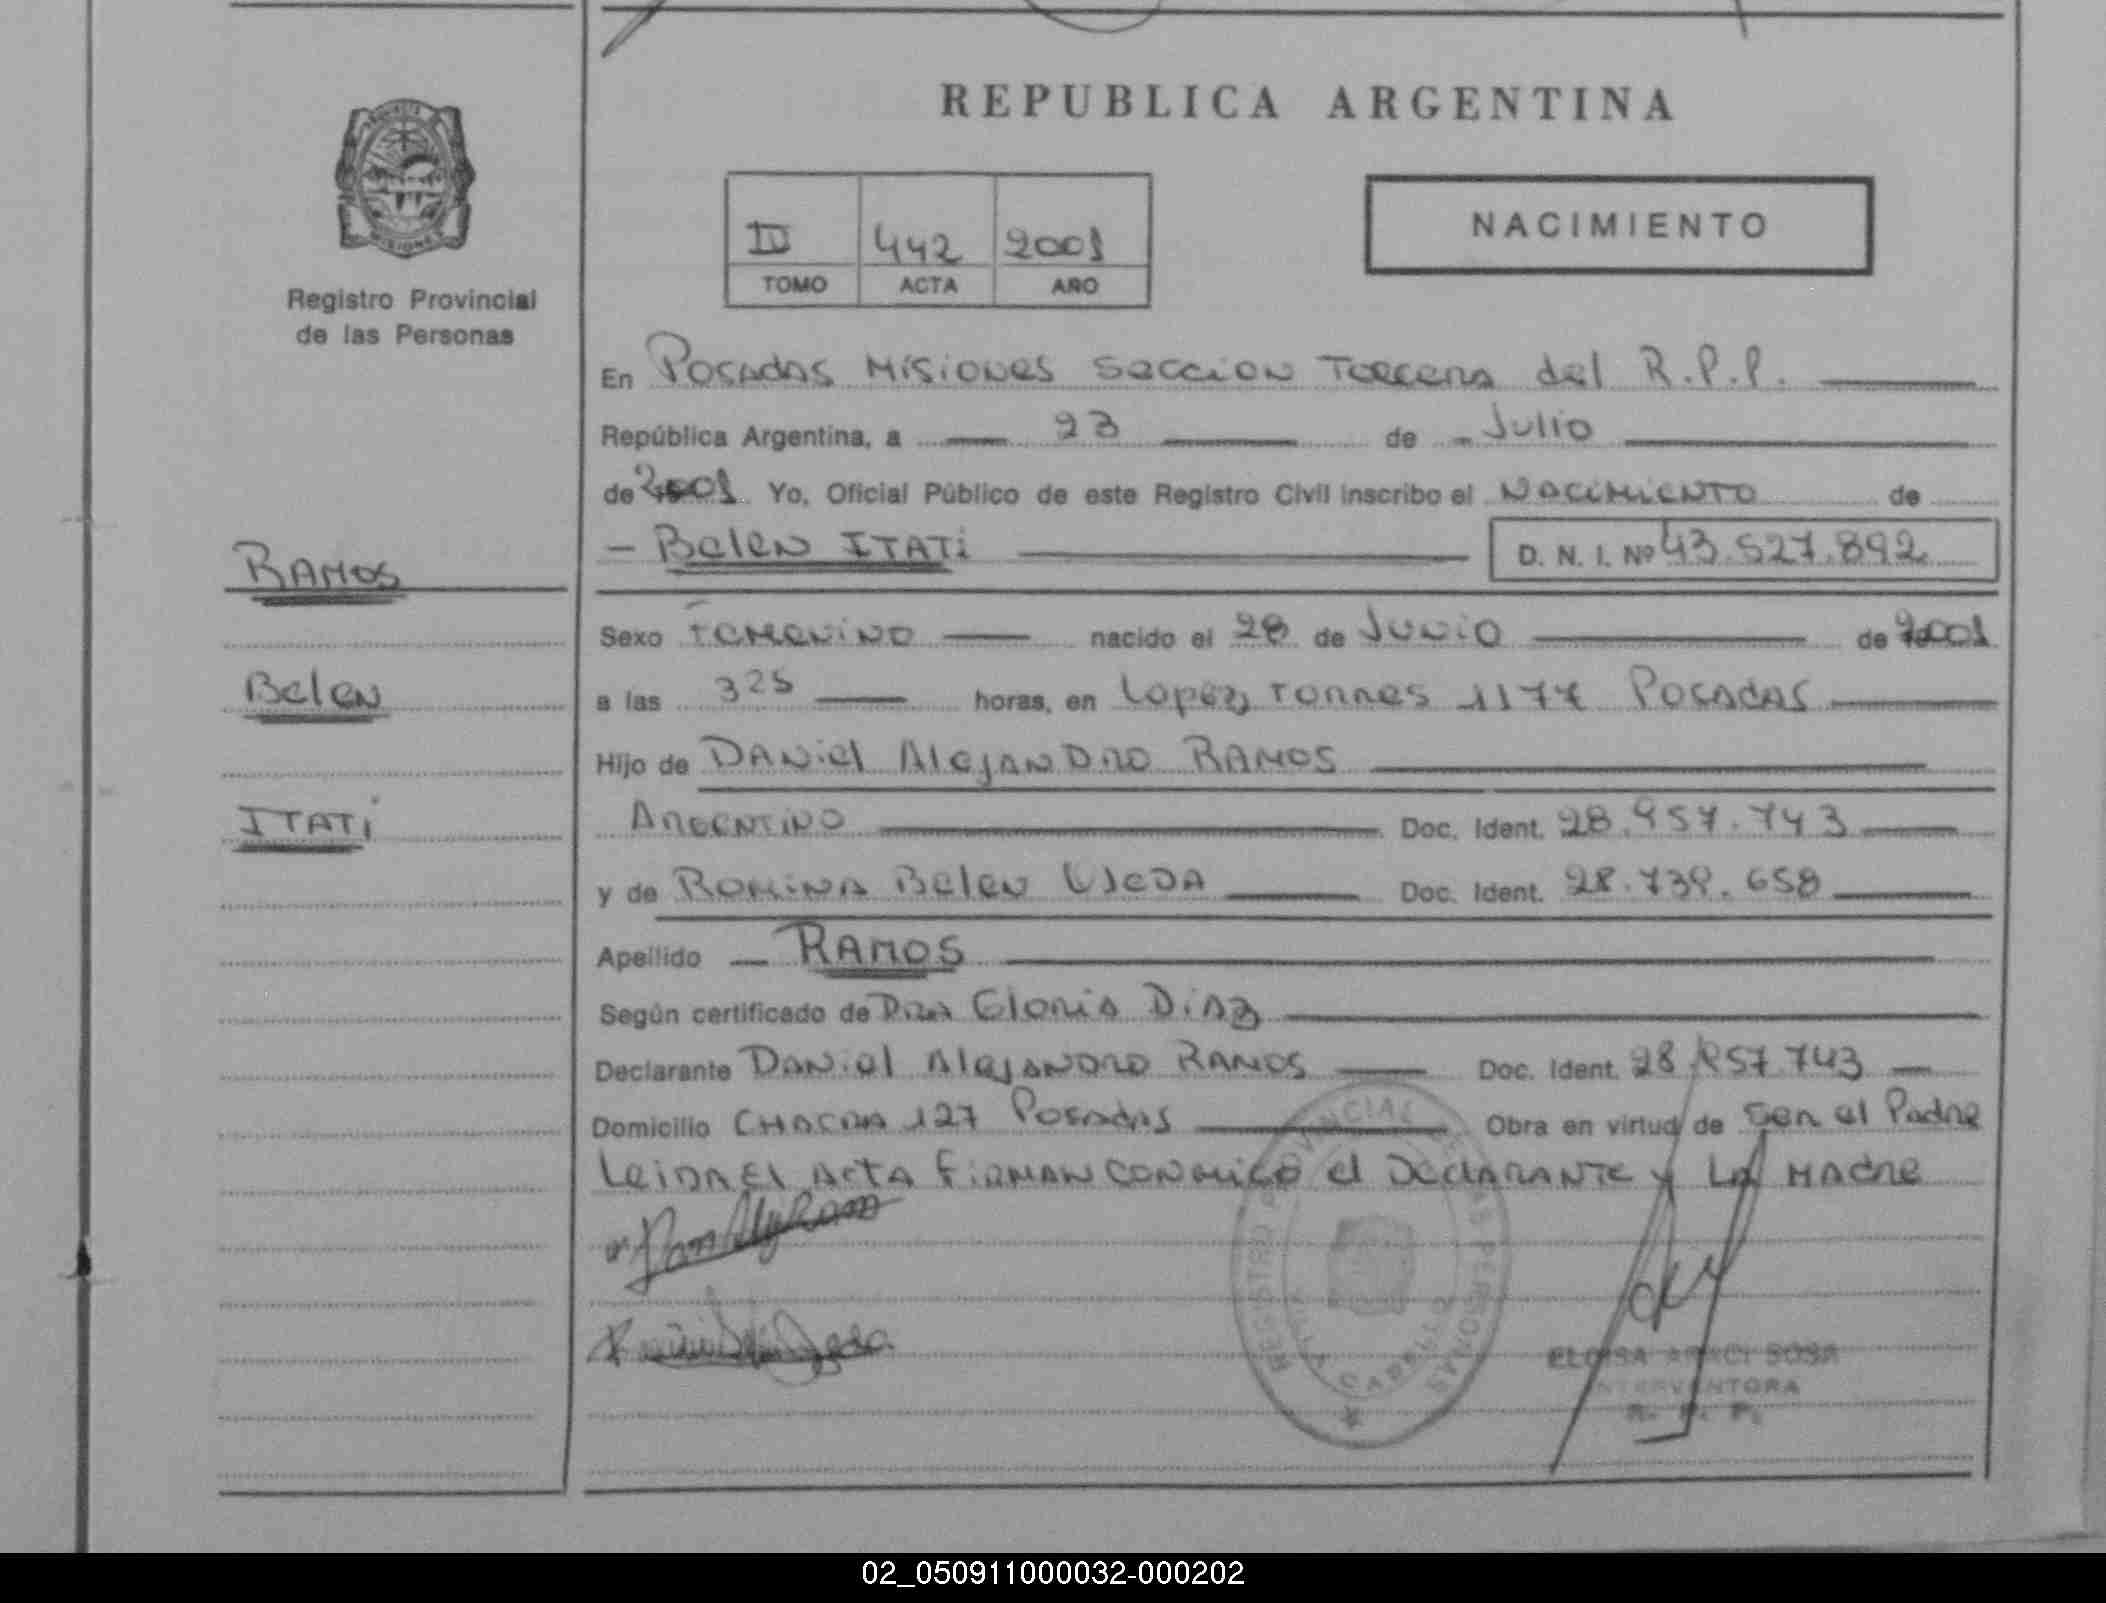 REPUBLICA ARGENTINA
PROVINCIA
MISIONES
Registro Provincial
de las Personas
II 442 2001
TOMO ACTA AÑO
NACIMIENTO
En Posadas Misiones Seccion Tercera del R.P.P.
República Argentina, a 23 de Julio
de 2001 Yo, Oficial Público de este Registro Civil inscribo el Nacimiento de
Belen Itati D. N. I. Nº 43.527.892
Ramos
Belen
Itati
Sexo Femenino nacido el 28 de Junio de 2001
a las 325 horas, en Lopez Torres 1177 Posadas
Hijo de Daniel Alejandro Ramos
Argentino Doc. Ident. 28.957.743
y de Romina Belen Ujeda Doc. Ident. 28.739.658
Apellido Ramos
Según certificado de Dra Gloria Diaz
Declarante Daniel Alejandro Ramos Doc. Ident. 28.957.743
Domicilio Chacra 127 Posadas Obra en virtud de Ser el Padre
Leida El Acta Firman conmigo el Declarante y La Madre
REGISTRO PROVINCIAL DE LAS PERSONAS
VILLA CABELLO
ELOISA ARACI SOSA
INTERVENTORA
R. P. P.
02_050911000032-000202